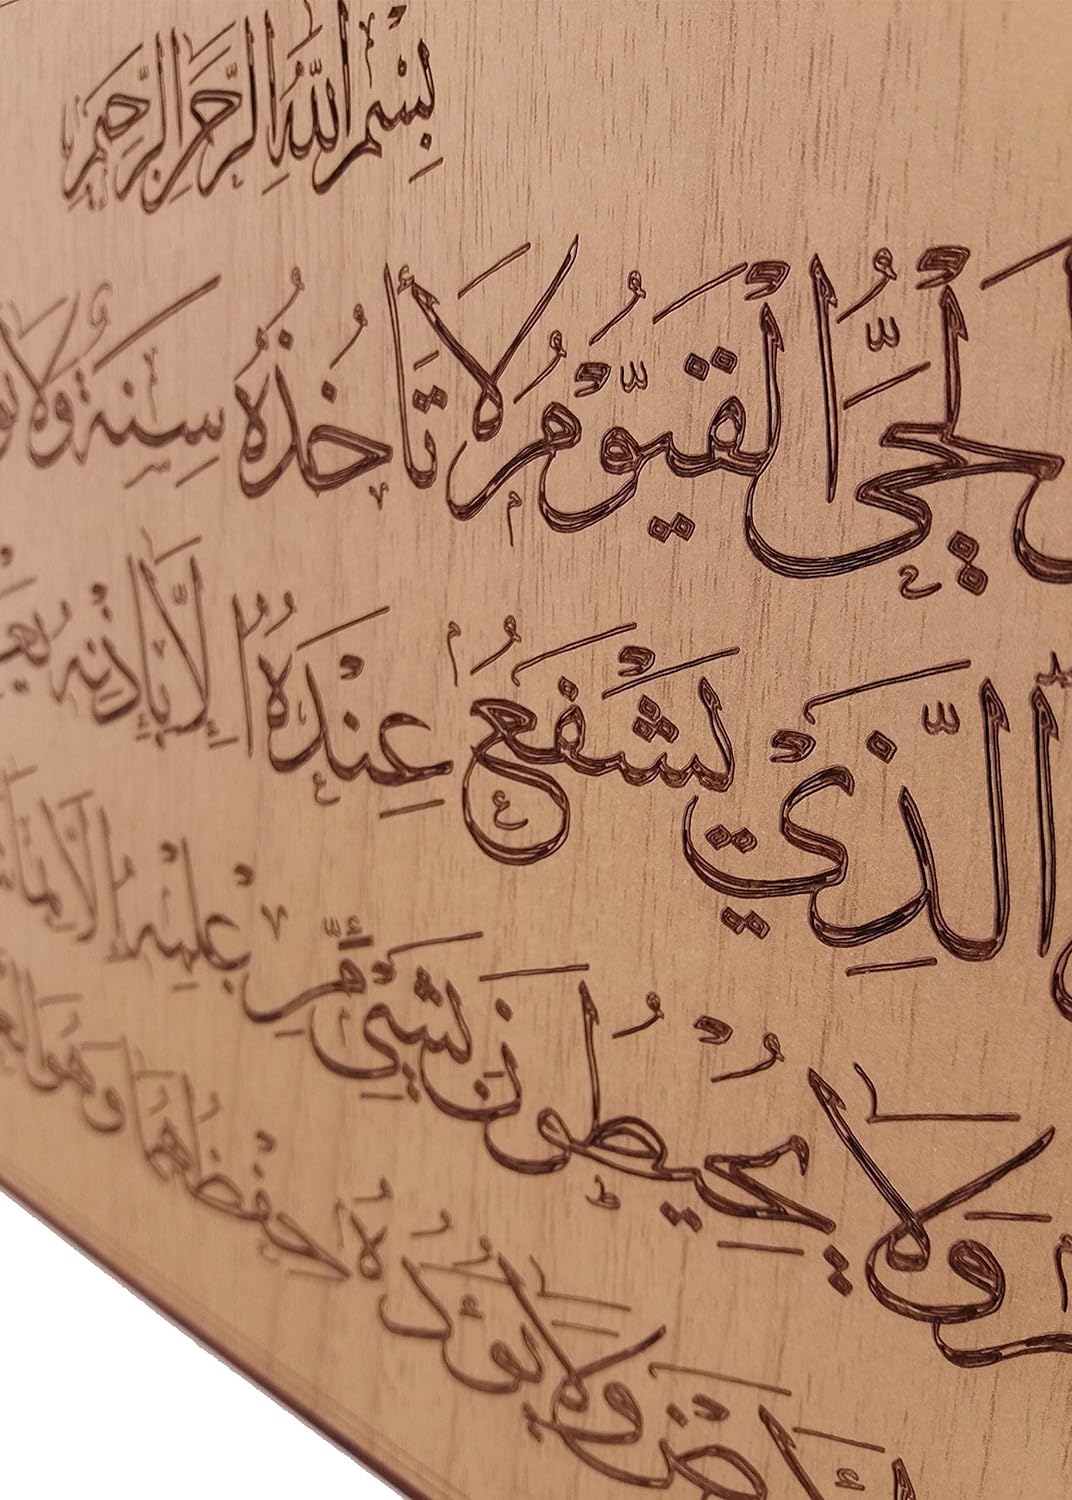 بِسْمِ اللّٰهِ الرَّحْمٰنِ الرَّحِيْمِ
الْحَيُّ الْقَيُّوْمُ لَا تَأْخُذُهُ سِنَةٌ وَلَا
الَّذِيْ يَشْفَعُ عِنْدَهُ إِلَّا بِإِذْنِهِ
وَلَا يُحِيْطُوْنَ بِشَيْءٍ مِّنْ عِلْمِهِ إِلَّا بِمَا
وَلَا يَئُوْدُهُ حِفْظُهُمَا وَهُوَ